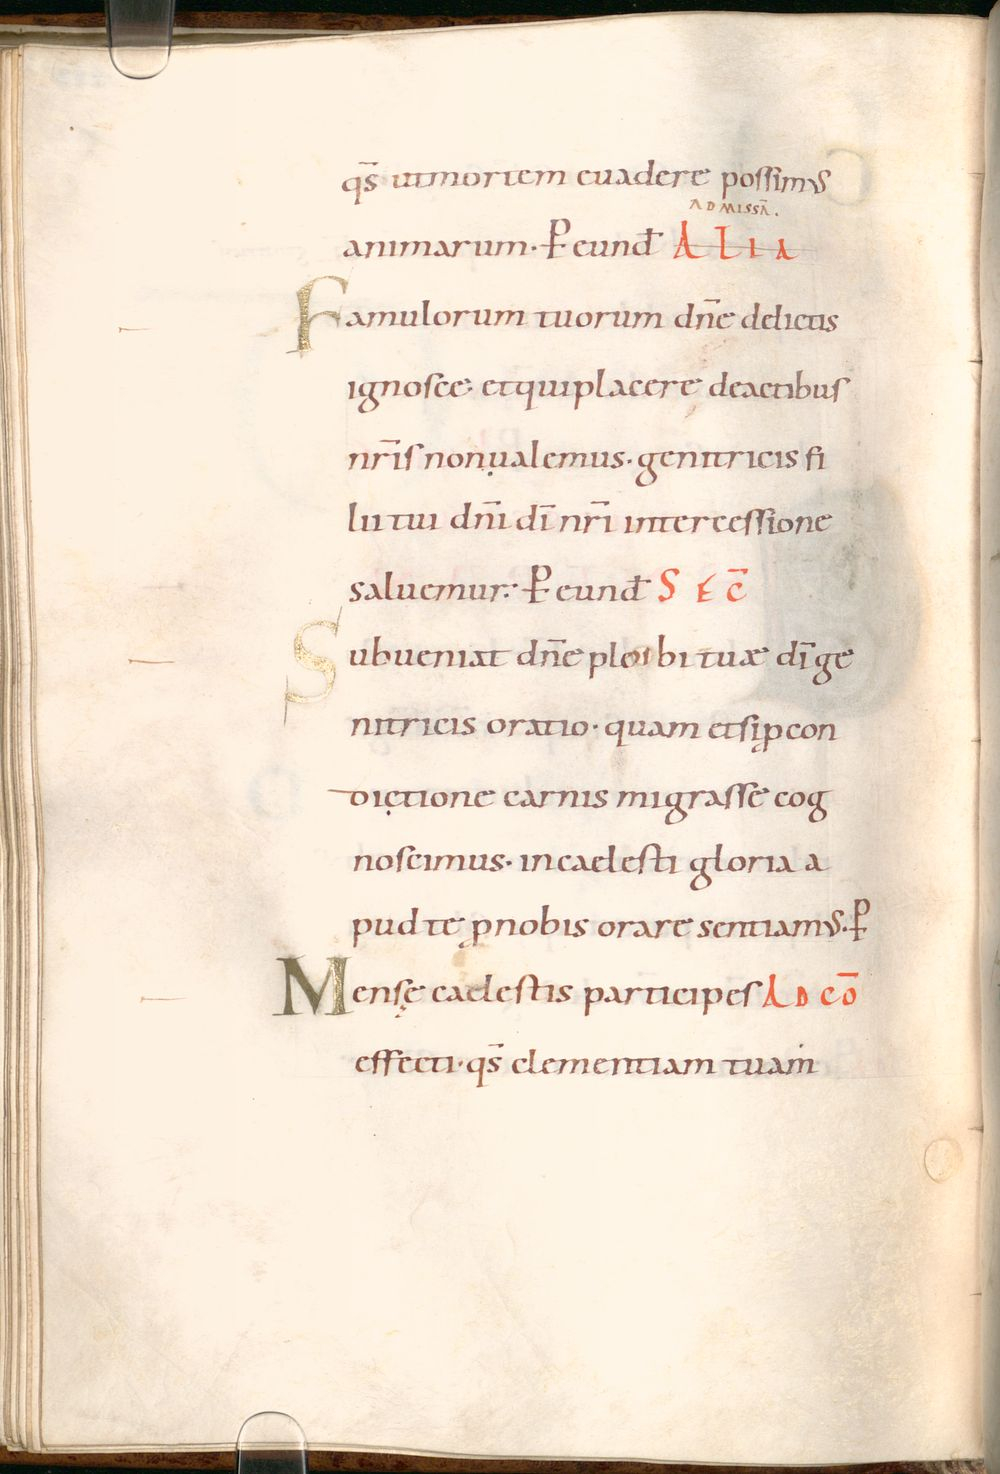 qs̄ ut mortem euadere possimus
AD MISSĀ.
animarum. P̄ eund̄ ALIA
Famulorum tuorum dn̄e delictis
ignosce. et qui placere de actibus
nr̄is non ualemus. genitricis fi
lii tui dn̄i dī nr̄i intercessione
saluemur. P̄ eund̄ SEC̄
Subueniat dn̄e plebi tuæ dī ge
nitricis oratio. quam etsi ꝓ con
dictione carnis migrasse cog
noscimus. in caelesti gloria a
pud te ꝓ nobis orare sentiamus. P̄
Mensę caelestis participes AD CŌ
effecti. qs̄ clementiam tuam